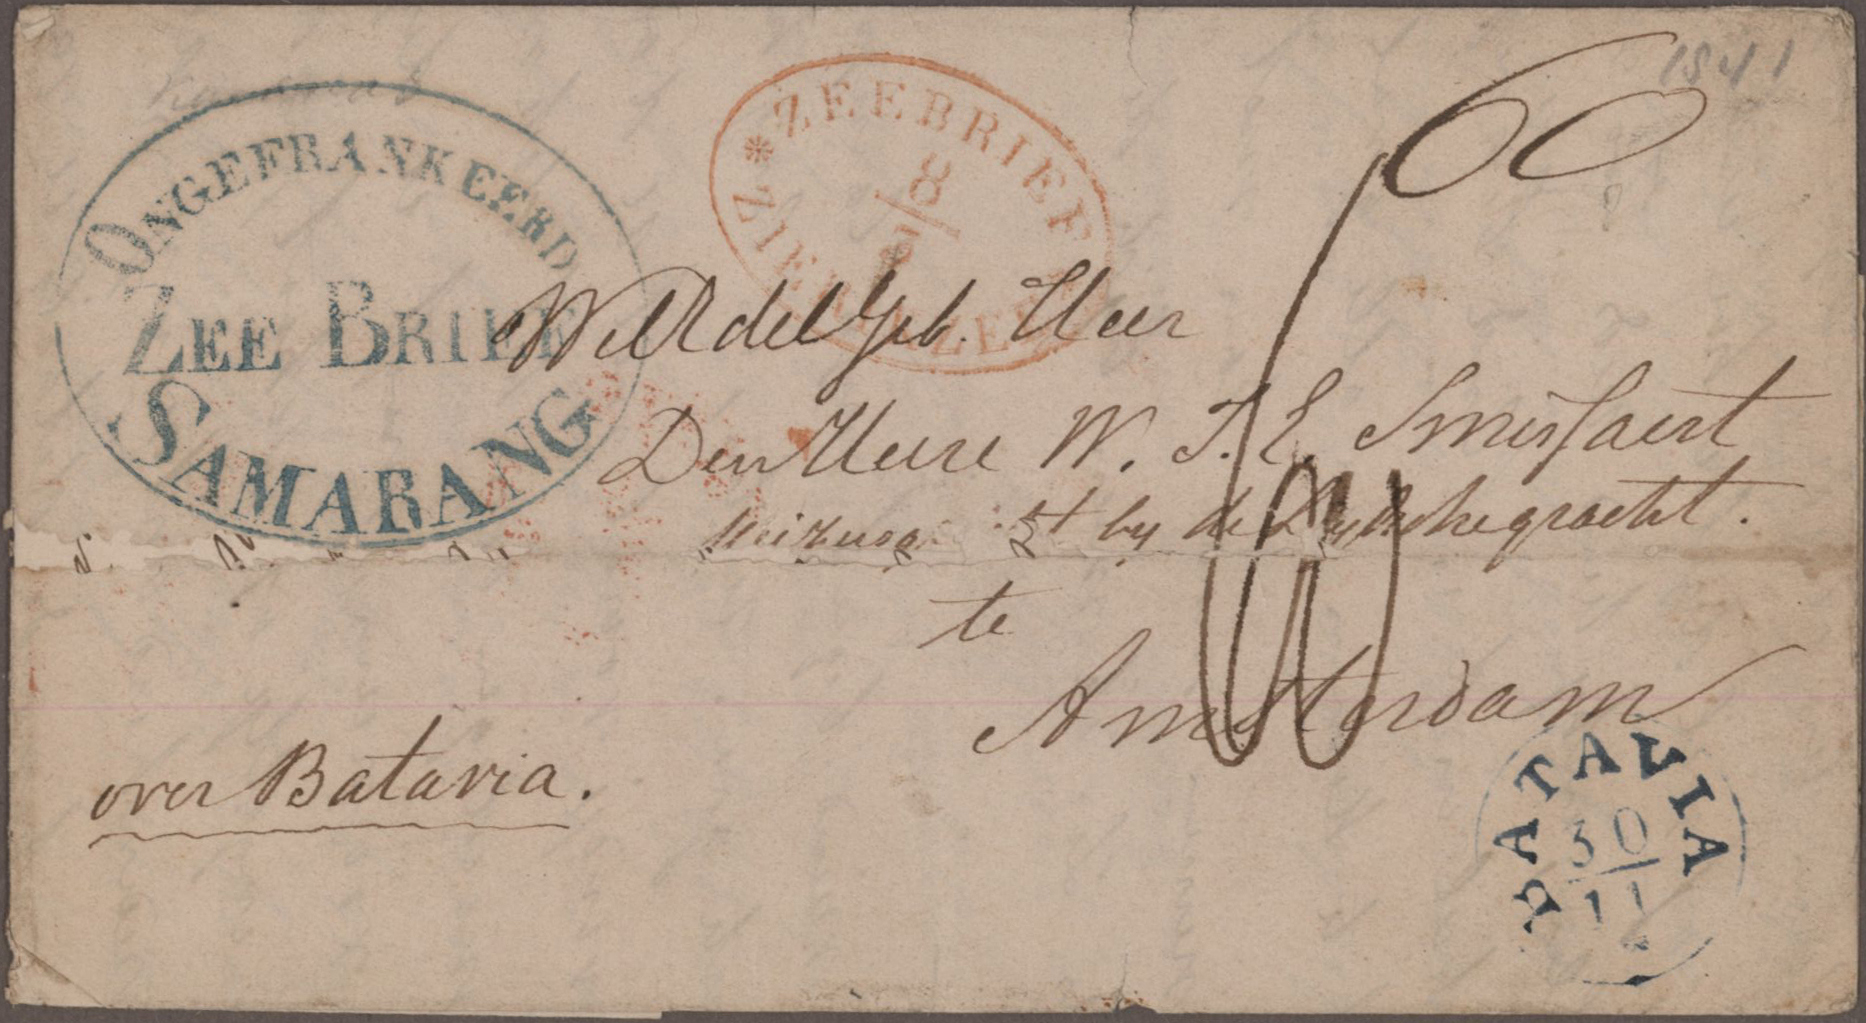 1841
60
ONGEFRANKEERD
ZEE BRIEF
SAMARANG
ZEEBRIEF
8
ZIERIKZEE
WelEdelGeb. Heer
Den Heere W. J. E. Smissaert
by de
te
Amsterdam
over Batavia.
BATAVIA
30
11